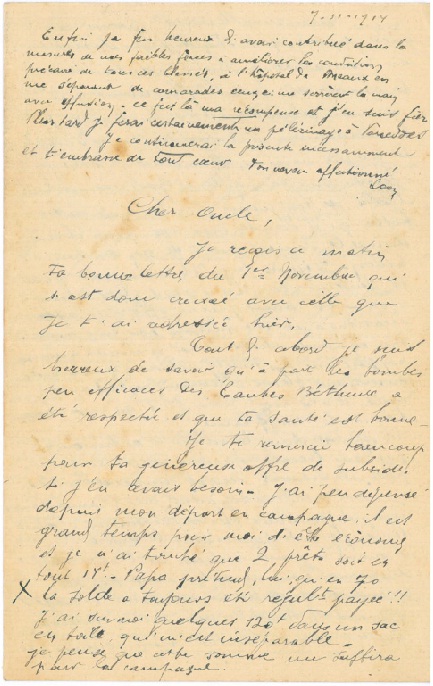 7-11-1914
Enfin je fus heureux d'avoir contribué dans la
mesure de nos faibles forces à améliorer les conditions
précaires de tous ces blessés, à l'hôpital de
me séparant de camarades ceux-ci me serrèrent la main
avec effusion. ce fut là ma récompense et j'en suis fier
Plus tard je ferai certainement un pélérinage à
Je continuerai la présente incessamment
et t'embrasse de tout cœur Ton neveu affectionné
Cher Oncle,
Je reçois ce matin
ta bonne lettre du 1er Novembre qui
s'est donc croisée avec celle que
je t'ai adressée hier.
Tout d'abord je suis
heureux de savoir qu'à part les bombes
peu efficaces des Taubes Béthune a
été respecté et que ta santé est bonne-
Je te remercie beaucoup
pour ta généreuse offre de subside
si j'en avais besoin. J'ai peu dépensé
depuis mon départ en campagne, il est
grand temps pour moi d'être économe
et je n'ai touché que 2 prêts soit en
tout 15f.- Papa prétend, lui, qu'en 70
la solde a toujours été payée!!
j'ai sur moi quelques 120f dans un sac
en toile, qui m'est inséparable
je pense que cette somme me suffira
pour la campagne.